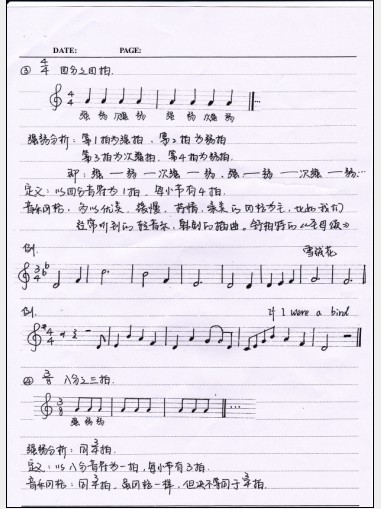 DATE: PAGE:
③ 4/4 四分之四拍.
4/4
强 弱 次强 弱 强 弱 次强 弱
强弱分析: 第1拍为强拍, 第2拍为弱拍
第3拍为次强拍, 第4拍为弱拍.
即: 强—弱—次强—弱, 强—弱—次强—弱…
定义: 以四分音符为1拍, 每小节有4拍.
音乐风格: 多以优美、缓慢、抒情、柔美的风格为主, 比如我们
经常听到的轻音乐,
例. 雪绒花
3/4
例. If I were a bird
4/4
④ 3/8 八分之三拍.
3/8
强 弱 弱
强弱分析: 同3/4拍.
定义: 以八分音符为一拍, 每小节有3拍.
音乐风格: 同3/4拍. 虽风格一样, 但决不等同于3/4拍.